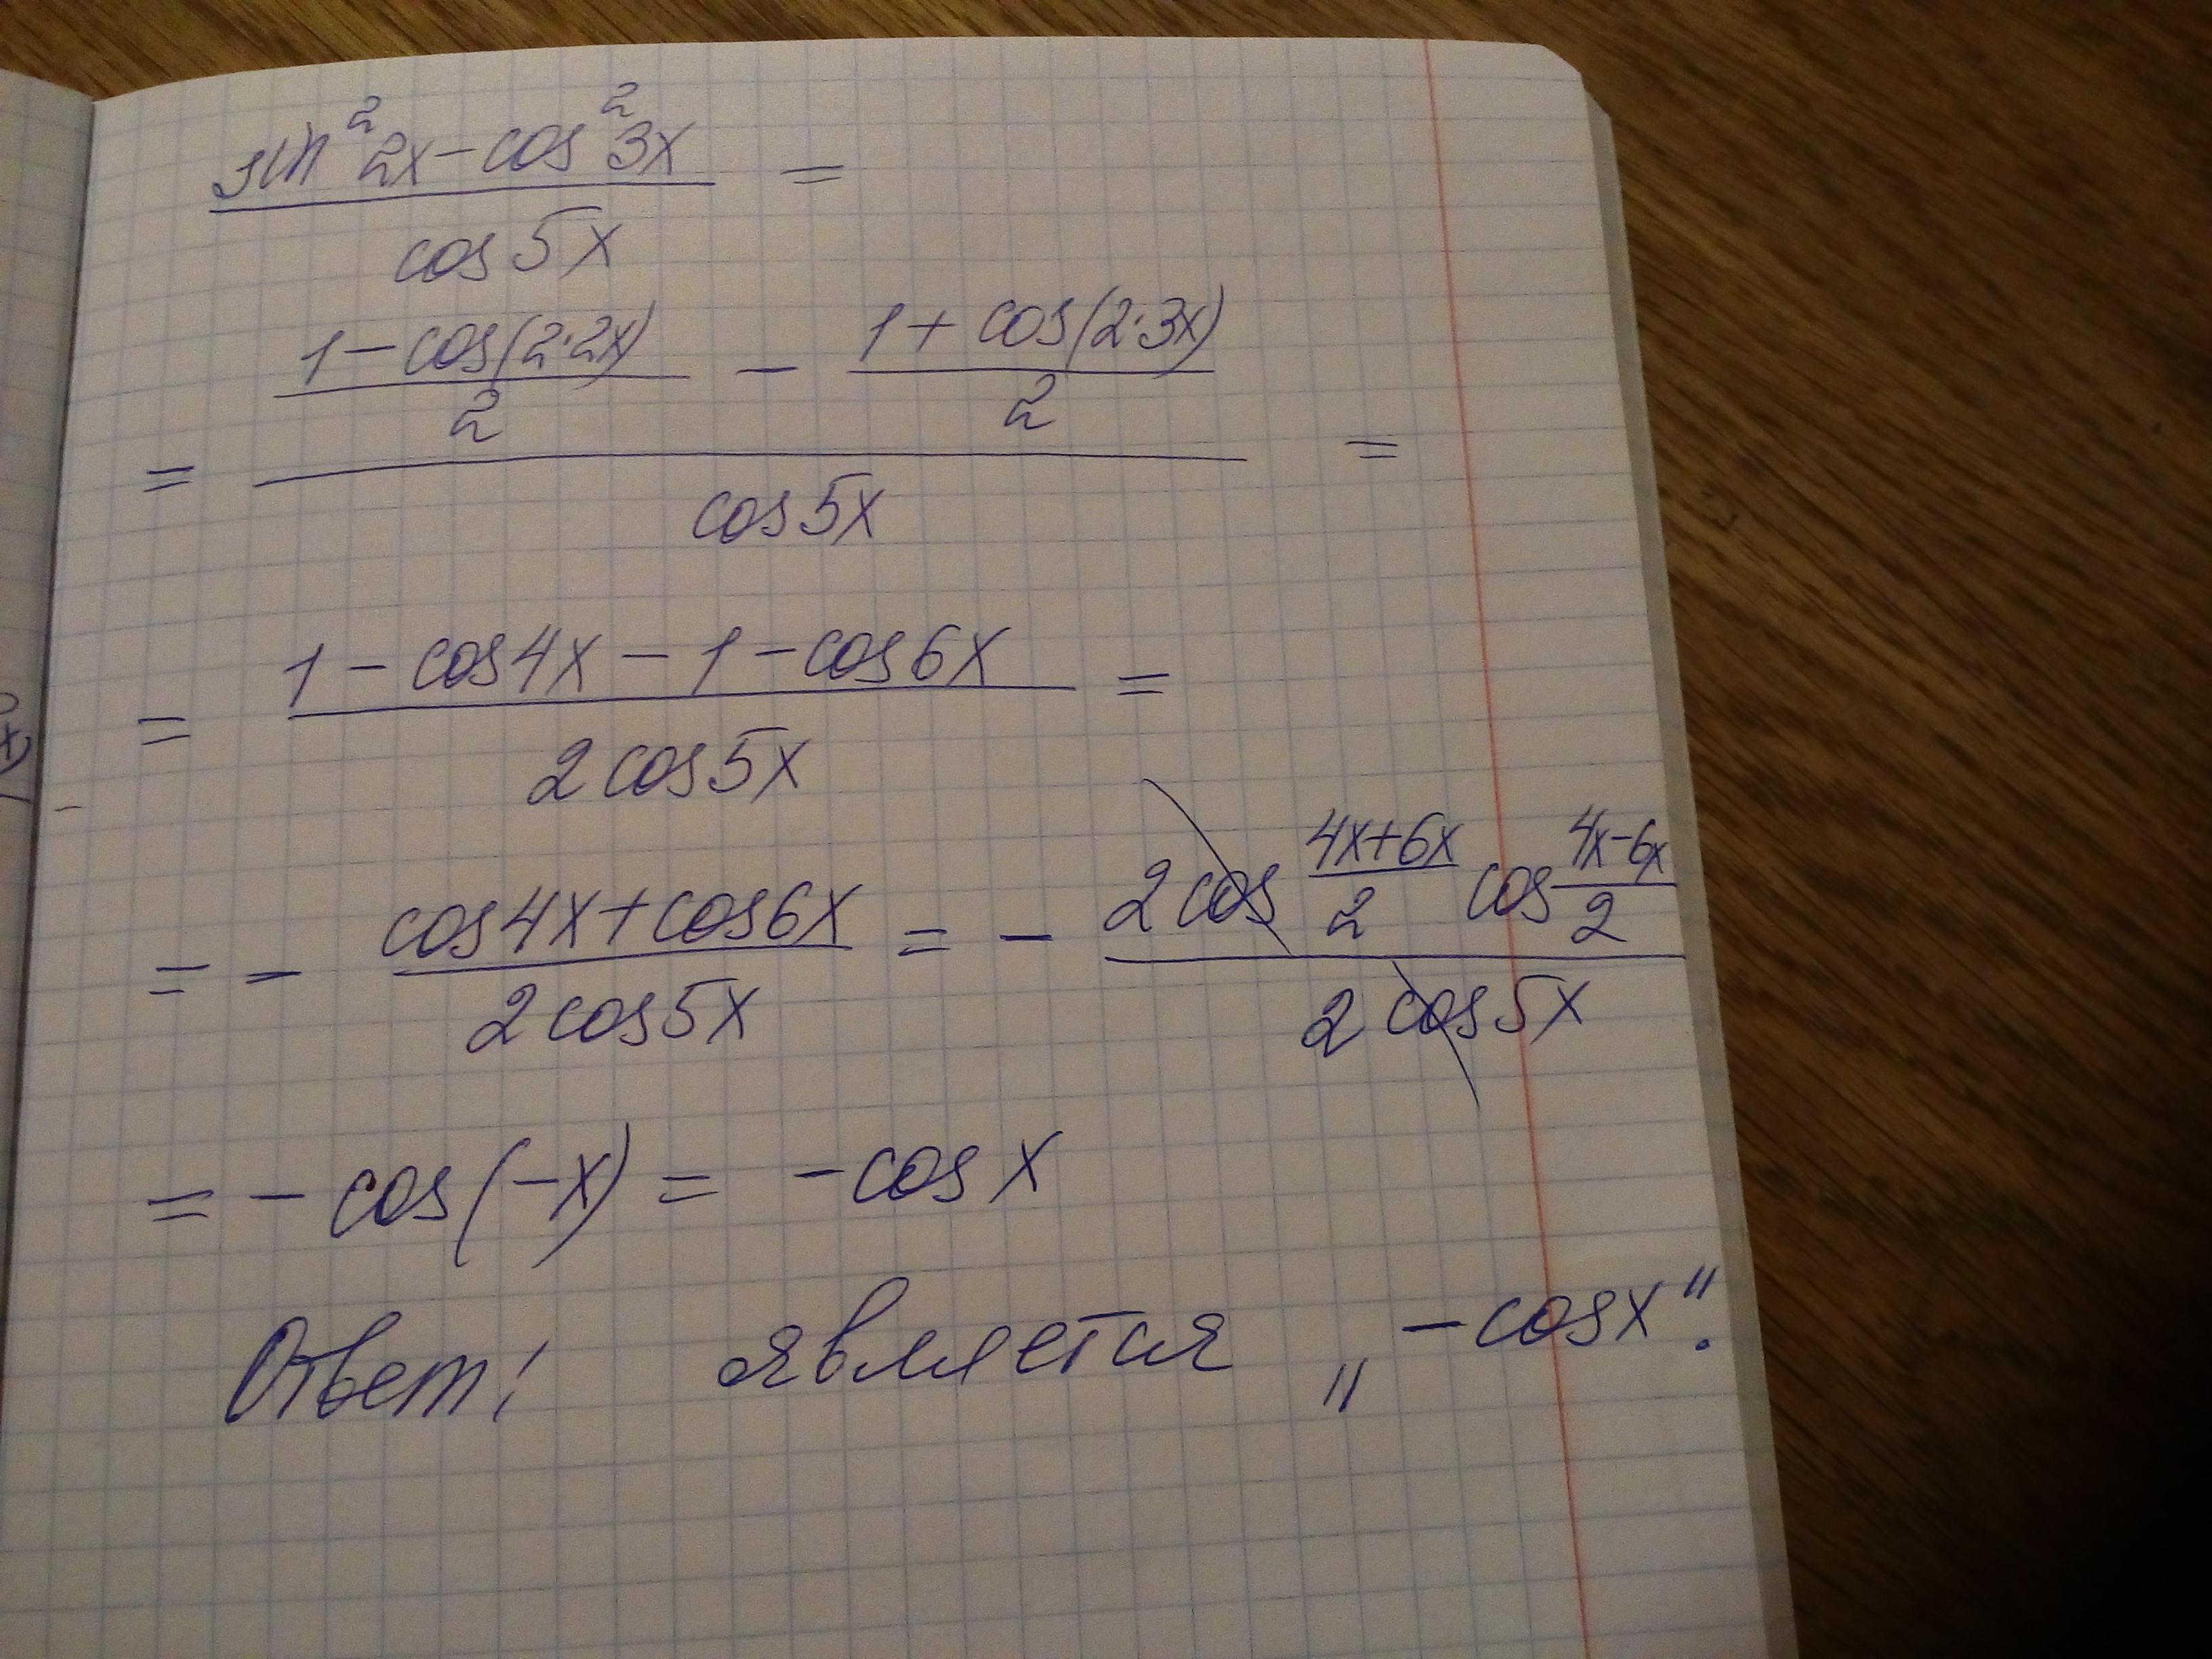 sin²2x-cos²3x / cos5x =
= (1-cos(2·2x) / 2 - 1+cos(2·3x) / 2) / cos5x =
= 1-cos4x-1-cos6x / 2cos5x =
= - cos4x+cos6x / 2cos5x = - 2cos 4x+6x / 2 cos 4x-6x / 2 / 2cos5x
= -cos(-x) = -cosx
Ответ: является „-cosx".